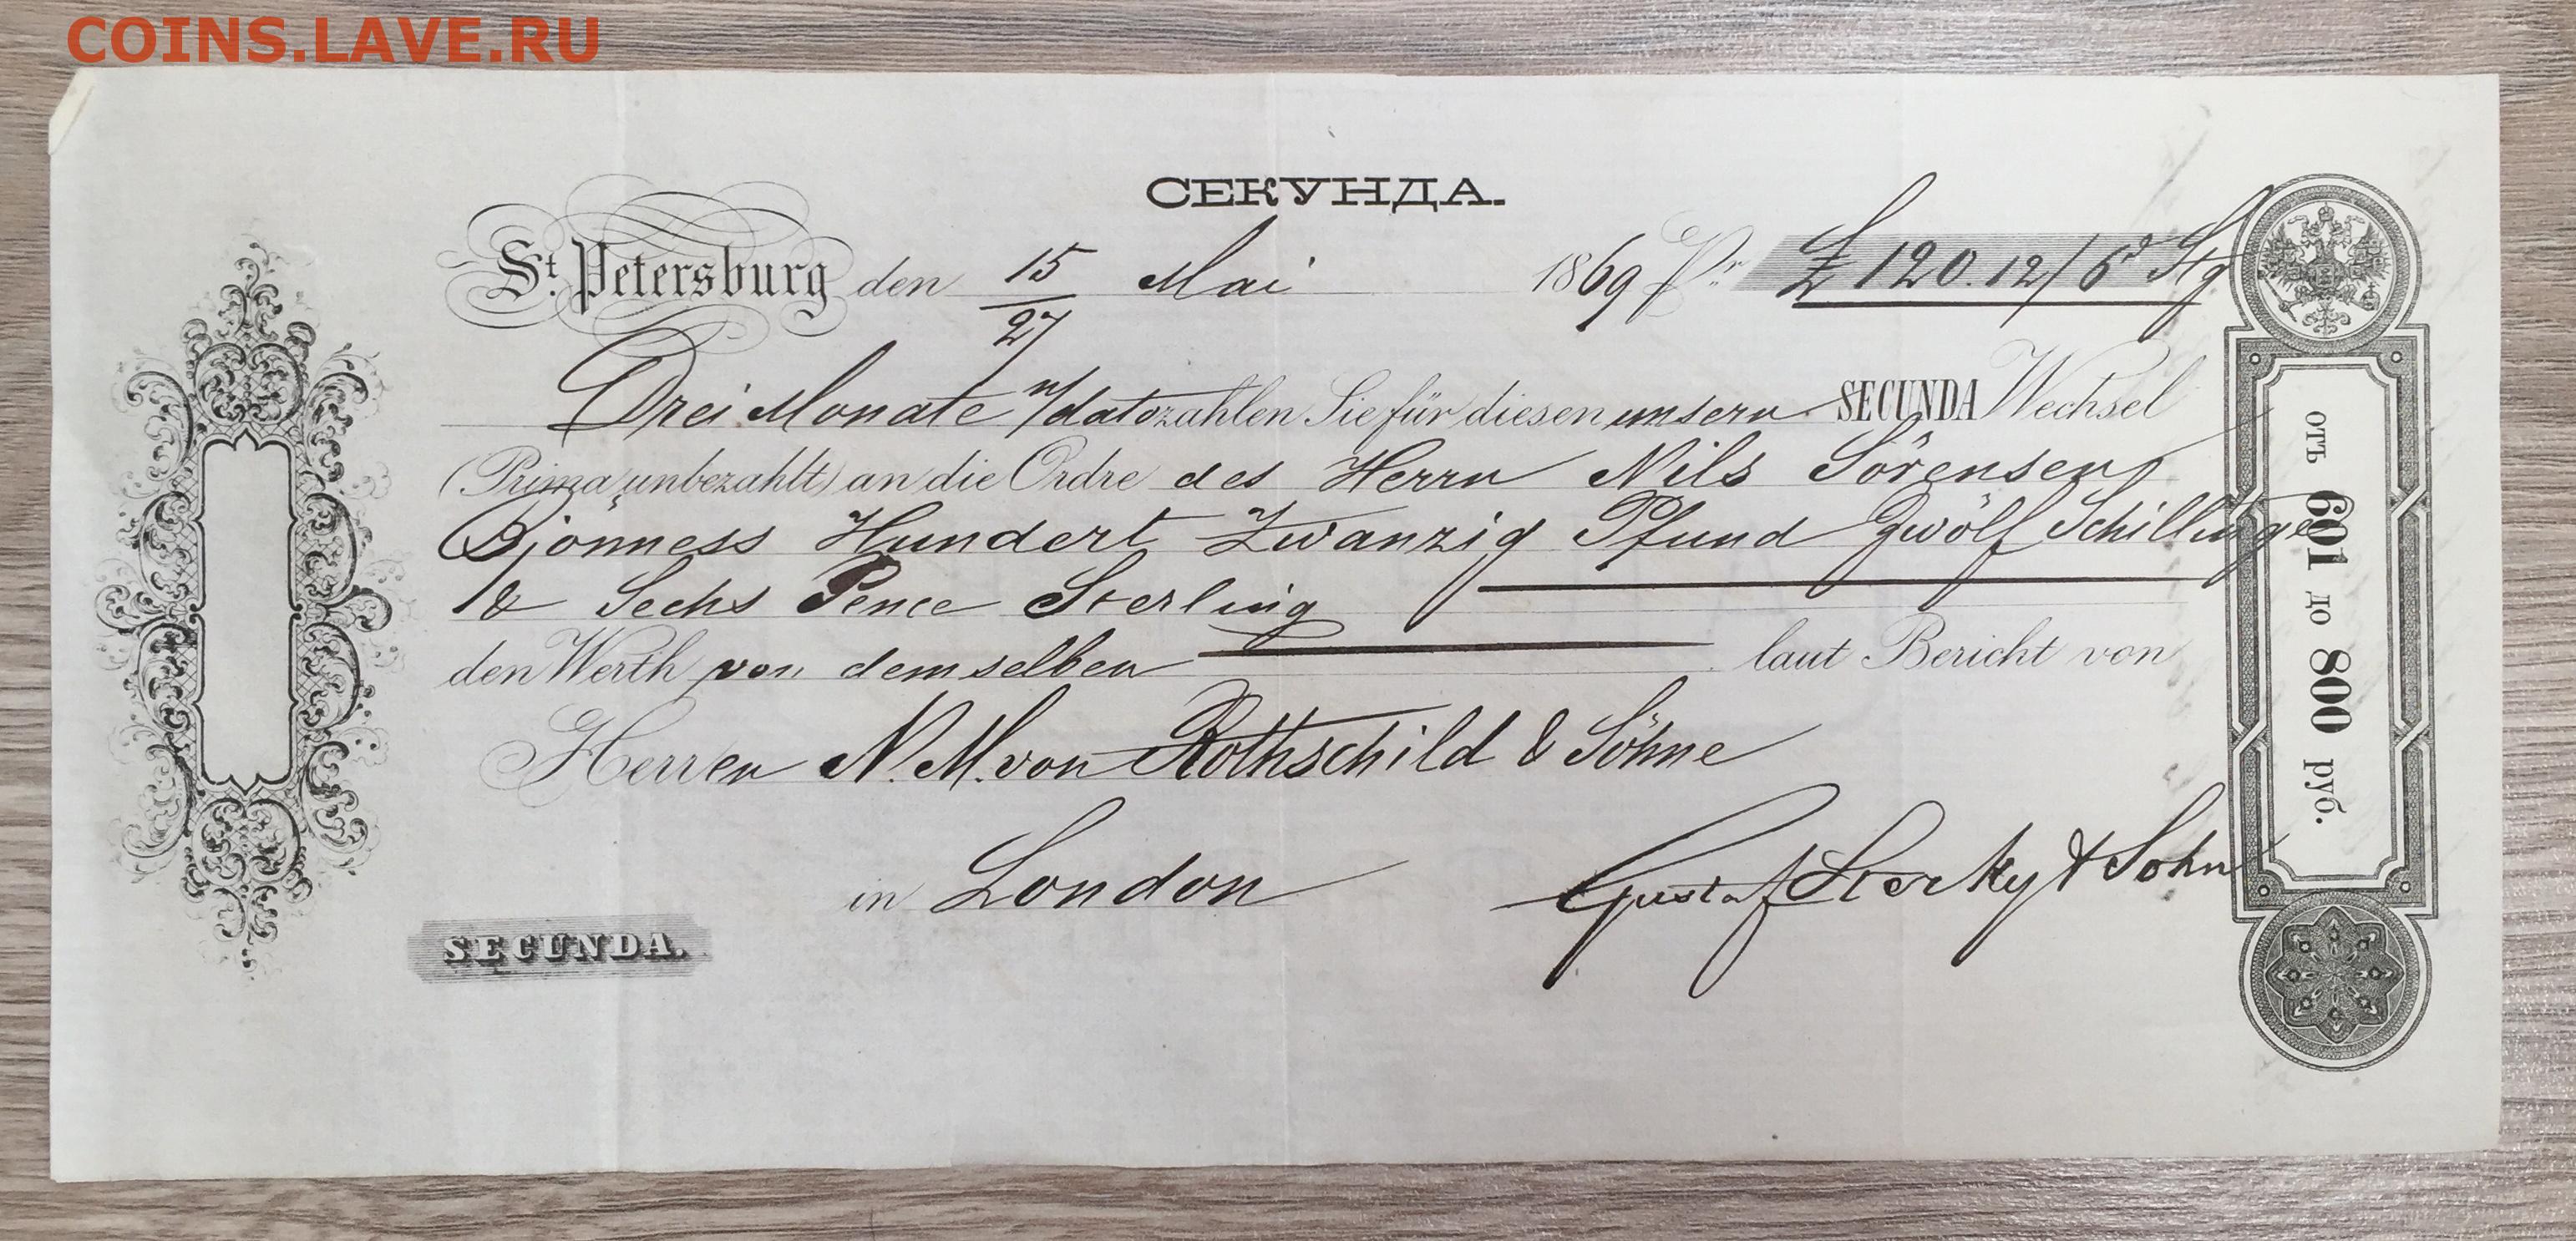 COINS.LAVE.RU
СЕКУНДА.
St. Petersburg den 15/27 Mai 1869 Pr. £ 120.12/6d Stg
Drei Monate n/dato zahlen Sie für diesen unsern SECUNDA Wechsel
(Prima unbezahlt) an die Ordre des Herrn Nils Sörensen
Bjönness Hundert Zwanzig Pfund Zwölf Schillinge
& Sechs Pence Sterling
den Werth von demselben laut Bericht von
Herren N. M. von Rothschild & Söhne
in London Gustaf Sterky & Sohn
SECUNDA.
отъ 601 до 800 руб.